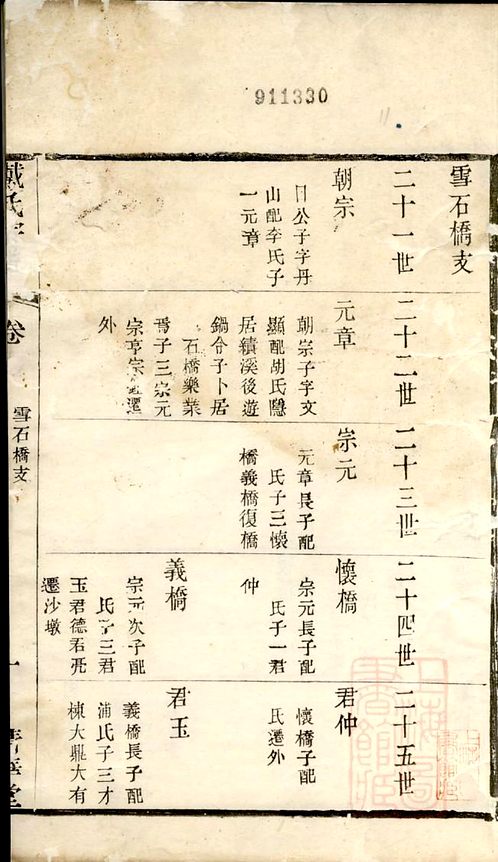 911330
雪石橋支
二十一世
朝宗
日公子字丹
山配李氏子
一元章
二十二世
元章
朝宗子字文
顯配胡氏隱
居績溪後遊
鍋合子卜居
石橋樂業
焉子三宗元
宗亨宗 遷
外
二十三世
宗元
元章長子配
氏子三懷
橋義橋復橋
二十四世
懷橋
宗元長子配
氏子一君
仲
義橋
宗元次子配
氏子三君
玉君德君亮
遷沙墩
二十五世
君仲
懷橋子配
氏遷外
君玉
義橋長子配
浦氏子三才
棟大鼎大有
戴氏
卷
雪石橋支
一
堂